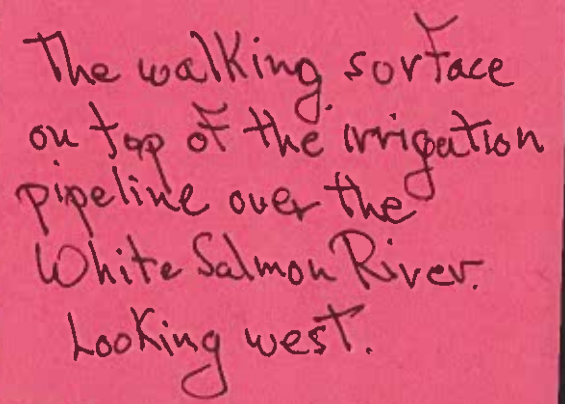 The walking surface
on top of the irrigation
pipeline over the
White Salmon River.
Looking west.